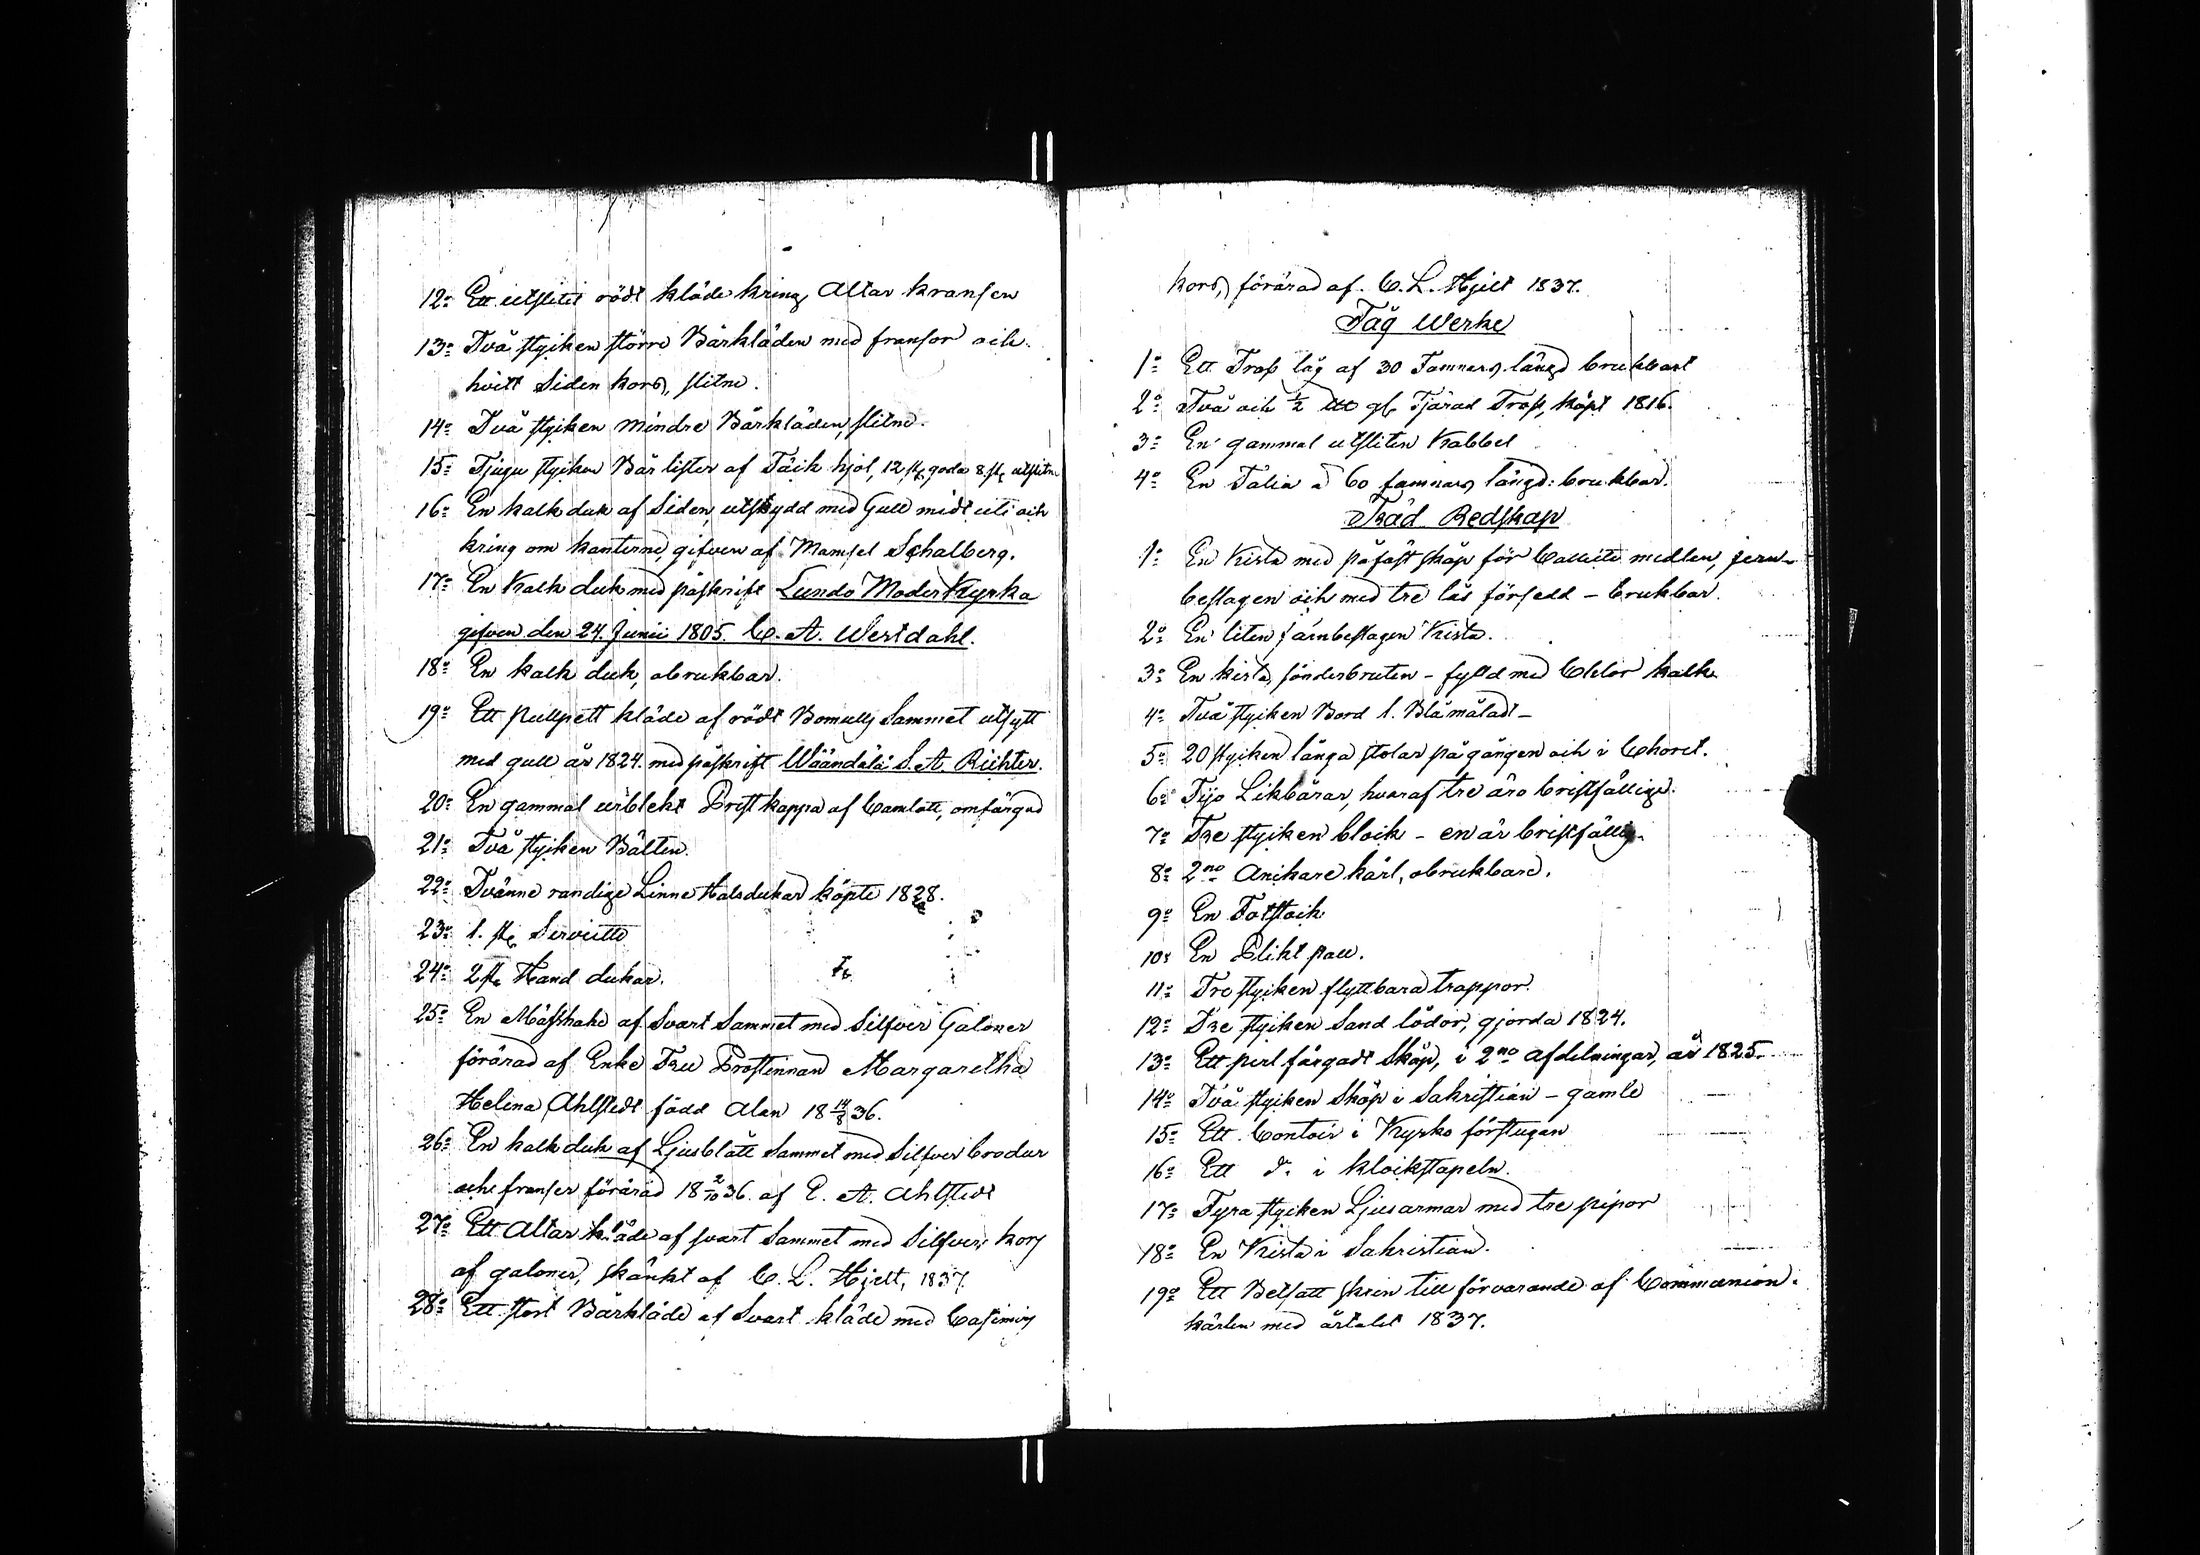 12o Ett utslitet rödt kläde kring Altar kransen
13o Två stycken större Bårkläden med fransor och
hvitt Siden kors, slitne.
14o Två stycken mindre Bårkläden, slitne.
15o Tjugu stycken Bår lister af Täck hjol, 12 st. goda 8 st. utslitne
16o En kalk duk af Siden, utsydd med Gull midt uti och
kring om kanterne, gifven af Mamsel Schalberg.
17o En Kalk duk med påskrift Lundo Moder Kyrka
gifven den 24. Junii 1805. C. A. Westdahl.
18o En kalk duk, obrukbar.
19o Ett pullpett kläde af rödt Bomulls Sammet utsytt
med gull år 1824. med påskrift Wäändälä S. A. Richter.
20o En gammal urblekt Prest kappa af Camlott, omfärgad
21o Två stycken Bälten.
22o Tvänne randige Linne Halsdukar köpte 1828.
23o 1. st. Serviette
24o 2 st. Hand dukar.
25o En Mässhake af Svart Sammet med Silfver Galoner
förärad af Enke Fru Prostinnan Margaretha
Helina Ahlstedt född Alan 18 14/8 36.
26o En kalk duk af Ljusblått Sammet med Silfver brodur
och franser förärad 18 2/10 36. af E. A. Ahlstedt
27o Ett Altar kläde af svart Sammet med Silfver kors
af galoner, skänkt af C. L. Hjelt, 1837.
28o Ett stort Bårkläde af Svart kläde med Casimirs
kors, förärad af C. L. Hjelt 1837.
Tåg Werke
1o Ett Tross tåg af 30 Famnars längd brukbart
2o Två och 1/2 Tjärad Tross, köpt 1816.
3o En gammal utsliten Kabbel
4o En Talia à 60 famnars längd: brukbar.
Träd Redskap
1o En Kista med påfäst skåp för Collecte medlen, jern-
beslagen och med tre lås försedd - brukbar.
2o En liten järnbeslagen Kista.
3o En kista, sönderbruten - fylld med Chlor kalk
4o Två stycken Bord 1. Blåmåladt -
5o 20 stycken långa stolar på gången och i Choret.
6o Tijo Likbårar, hvaraf tre äro bristfällige.
7o Tre stycken block - en är bristfällig.
8o 2no Ankare kärl, obrukbara.
9o En Fotstock
10o En Plikt pall.
11o Tre stycken flyttbara trappor.
12o Tre stycken Sand lödor, gjorda 1824.
13o Ett perl färgadt Skåp, i 2no afdelningar, år 1825.
14o Två stycken Skåp i Sakristian - gamle
15o Ett Contoir i Kyrko förstugan
16o Ett do i klockstapeln.
17o Fyra stycken Ljusarmar med tre pipor
18o En Kista i Sakristian.
19o Ett Betsatt skrin till förvarande af Communion.
kärlen med årtalet 1837.